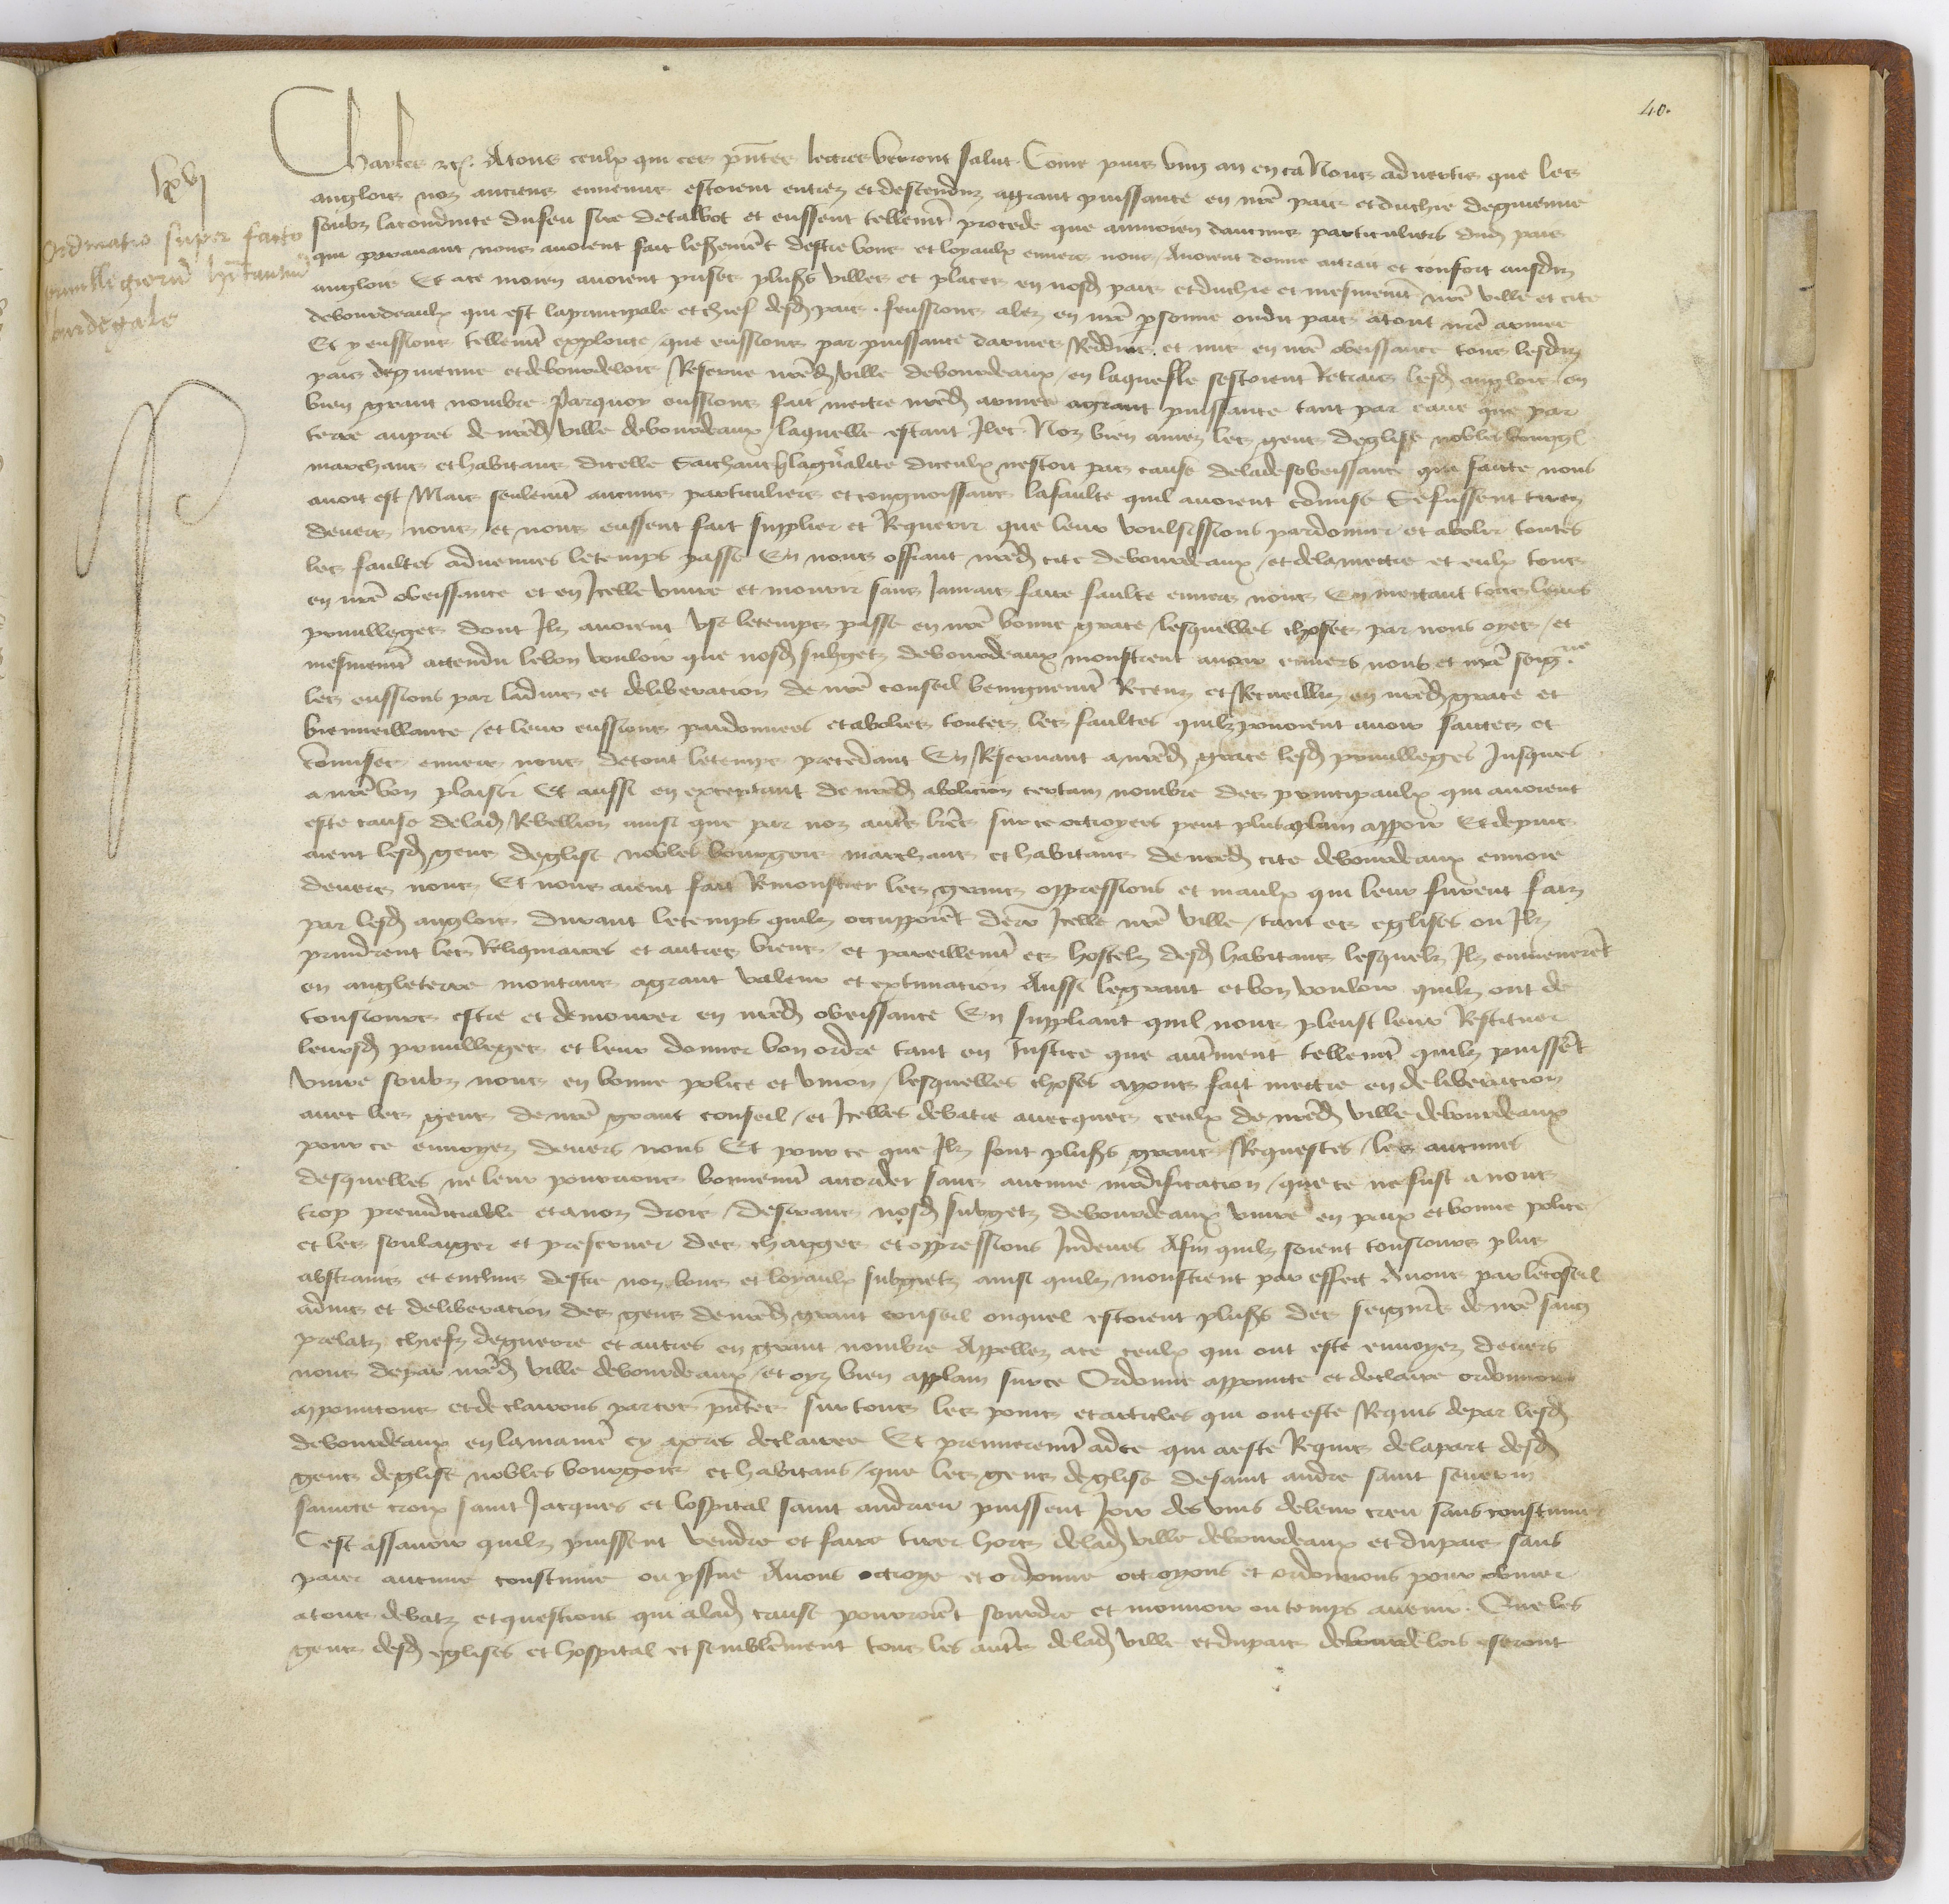 40.
lxvj
Ordinatio super facto
privillegiorum habitantium
Burdegale
Charles etc. A tous ceulx qui ces pñtes lectres verront salut. Come puis ung an en ca Nous advertis que les
anglois noz anciens ennemis estoient entrez et descenduz a grant puissance en nr̃e pais et duchie de guienne
soubz la conduite du feu sire de talbot et eussent tellemt̃ procede que aumoien daucuns particuliers dud̃ pais
qui paravant nous avoient fait le seremẽt destre bons et loyaulx envers nous Avoient donne attrait et confort ausdiz
anglois Et a ce moien avoient prises plusrs̃ villes et places en nosd̃ pais et duchie et mesmemt̃ nr̃e ville et cite
de bourdeaulx qui est la principale et chief desd̃ pais. feussions alez en nr̃e p̃sonne oudit pais a tout nr̃e armee
Et y eussions tellemt̃ exploicte que eussions par puissance darmes Redduit et mis en nr̃e obeissance tous lesdiz
pais de guienne et de bourdelois Reserve nr̃ed̃ ville de bourdeaux en laquelle sestoient Retrais lesd̃ anglois en
bien grant nombre Parquoy eussions fait mectre nr̃ed̃ armee a grant puissance tant par eaue que par
terre aupres de nr̃ed̃ ville de bourdeaux laquelle estant Ilec Noz bien amez les gens deglise nobles bourgois
marchans et habitans dicelle Saichans q̃ la gñalite diceulx nestoit pas cause de la desobeissance qui faicte nous
avoit est Mais seulemt̃ aucuns particuliers et congnoissans la faulte quil avoient c̃omise Se fussent tirez
devers nous et nous eussent fait supplier et Requerir que leur voulsissions pardonner et abolir toutes
les faultes advenues le temps passe En nous offrant nr̃ed̃ cite de bourdeaux et de la mectre et eulx tous
en nr̃e obeissance et en Icelle vivre et mourir sans Jamais faire faulte envers nous En mectant tous leurs
previlleges dont Ilz avoient use le temps passe en nr̃e bonne grace lesquelles choses par nous oyes et
mesmemt̃ actendu le bon vouloir que nosd̃ subgetz de bourdeaux monstrent avoir envers nous et nr̃e seigrie
les eussions par ladvis et deliberacion de nr̃e conseil benignemt̃ Receuz et Recueilliz en nr̃ed̃ grace et
bienveillance et leur eussions pardonnees et abolies toutes les faultes quilz povoient avoir faictes et
c̃omises envers nous de tout le temps precedant En Reservant a nr̃ed̃ grace lesd̃ previlleges Jusques
a nr̃e bon plaisir Et aussi en exceptant de nr̃ed̃ abolicion certain nombre des principaulx qui avoient
este cause de lad̃ Rebellion ainsi que par noz autr̃es lr̃es sur ce octroyees peut plus a plain apparoir Et depuis
aient lesd̃ gens deglise nobles bourgois marchans et habitans de nr̃ed̃ cite de bourdeaux envoie
devers nous Et nous aient fait Remonstrer les grans oppressions et maulx qui leur furent faiz
par lesd̃ anglois durant le temps quilz occupperẽt Icelle nr̃e ville tant es eglises ou Ilz
prindrent les Reliquiaires et autres biens et pareillemt̃ es hostelz desd̃ habitans lesquelz Ilz enmenerẽt
en angleterre montans a grant valeur et extimacion Aussi le grant et bon vouloir quilz ont de
tousiours estre et demourer en nr̃ed̃ obeissance En suppliant quil nous pleust leur Restituer
leursd̃ previlleges et leur donner bon ordre tant en Justice que autr̃ment tellemt̃ quilz puissẽt
vivre soubz nous en bonne police et union lesquelles choses ayons fait mectre en deliberacion
avec les gens de nr̃e grant conseil et Icelles debatre avecques ceulx de nr̃ed̃ ville de bourdeaux
pour ce envoyez devers nous Et pour ce que Ilz font plusrs̃ grans Requestes les aucunes
desquelles ne leur pourrions bonnemt̃ accorder sans aucune modificacion que ce ne fust a nous
trop preiudiciable et a noz drois Desirans nosd̃ subgetz de bourdeaux vivre en paix et bonne police
et les soulaiger et preserver des charges et oppressions Indeues Afin quilz soient tousiours plus
abstrains et enclins destre noz bons et loyaulx subgetz ainsi quilz monstrent par effect Avons par le c̃oseil
advis et deliberacion des gens de nr̃ed̃ grant conseil ouquel estoient plusrs̃ des seigneurs de nr̃e sang
prelatz chiefz de guerre et autres en grant nombre Appellez a ce ceulx qui ont este envoyez devers
nous depar nr̃ed̃ ville de bourdeaux et oyz bien applain sur ce Ordonne appoincte et declaire ordonnons
appointons et declairons par ces pñtes sur tous les poins et articles qui ont este Requis depar lesd̃
de bourdeaux en la maniẽ cy apres declairee Et premieremt̃ ad ce qui a este Requis de la part desd̃
gens deglise nobles bourgois et habitans que les gens deglise de saint andre saint severin
saincte croix saint Jacques et lospital saint andrieu puissent Joir des vins de leur creu sans coustume
Cest assavoir quilz puissent vendre et faire tirer hors de lad̃ ville de bourdeaux et du pais sans
paier aucune coustume ou yssue Avons octroye et ordonne octroyons et ordonnons pour obvier
a tous debatz et questions qui a lad̃ cause pourroiẽt sourdre et mouvoir ou temps avenir. Que les
gens desd̃ eglises et hospital et semblẽment tous les autr̃es de lad̃ ville et du pais de bourdelois seront